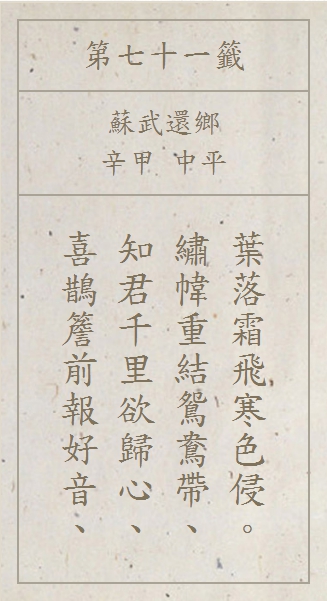 第七十一籤
蘇武還鄉
辛甲 中平
喜鵲簷前報好音、
知君千里欲歸心、
繡幃重結鴛鴦帶、
葉落霜飛寒色侵。